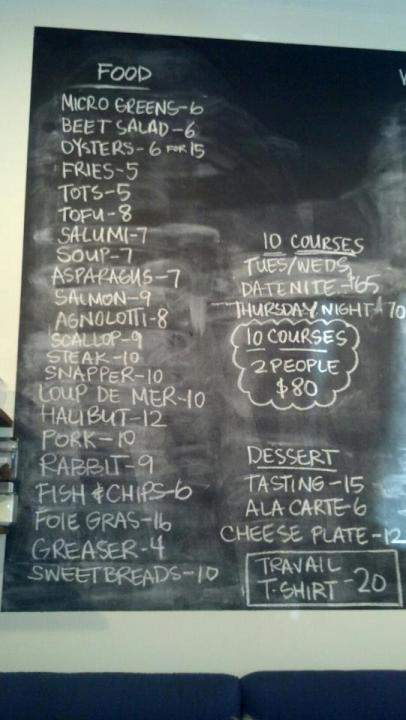 FOOD
MICRO GREENS-6
BEET SALAD-6
OYSTERS-6 FOR 15
FRIES-5
TOTS-5
TOFU-8
SALUMI-7
SOUP-7
ASPARAGUS-7
SALMON-9
AGNOLOTTI-8
SCALLOP-9
STEAK-10
SNAPPER-10
LOUP DE MER-10
HALIBUT-12
PORK-10
RABBIT-9
FISH & CHIPS-6
FOIE GRAS-16
GREASER-4
SWEETBREADS-10
10 COURSES
TUES/WEDS
DATE NITE-$65
THURSDAY NIGHT-70
10 COURSES
2 PEOPLE
$80
DESSERT
TASTING-15
ALA CARTE-6
CHEESE PLATE-12
TRAVAIL
T-SHIRT-20